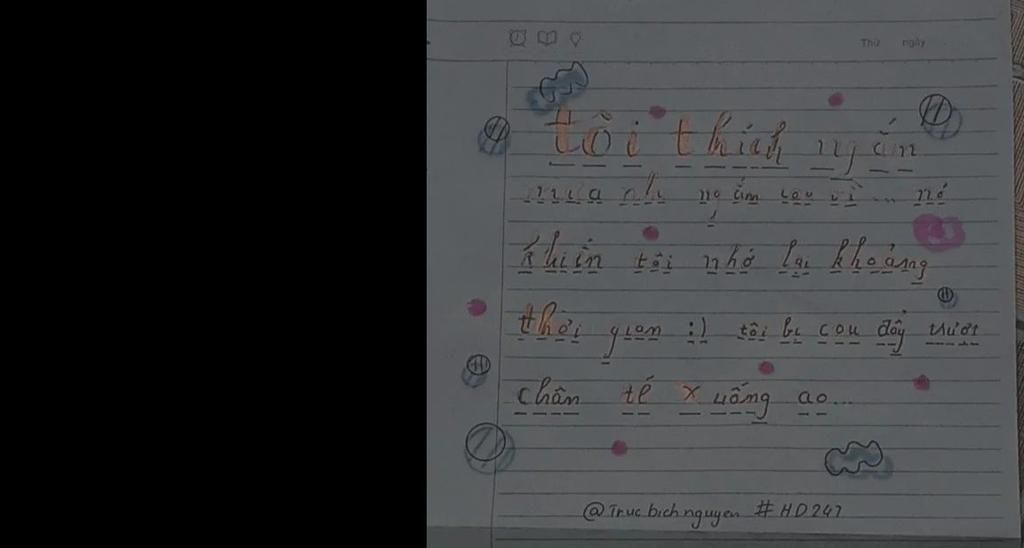 Thứ ngày
tôi thích ngắn
mưa nhị ngắm cou vì ... nó
khiến tôi nhớ lại khoảng
thời gian :) tôi bị cou đẩy trượt
chân té xuống ao...
@Trucbichnguyen #HD247